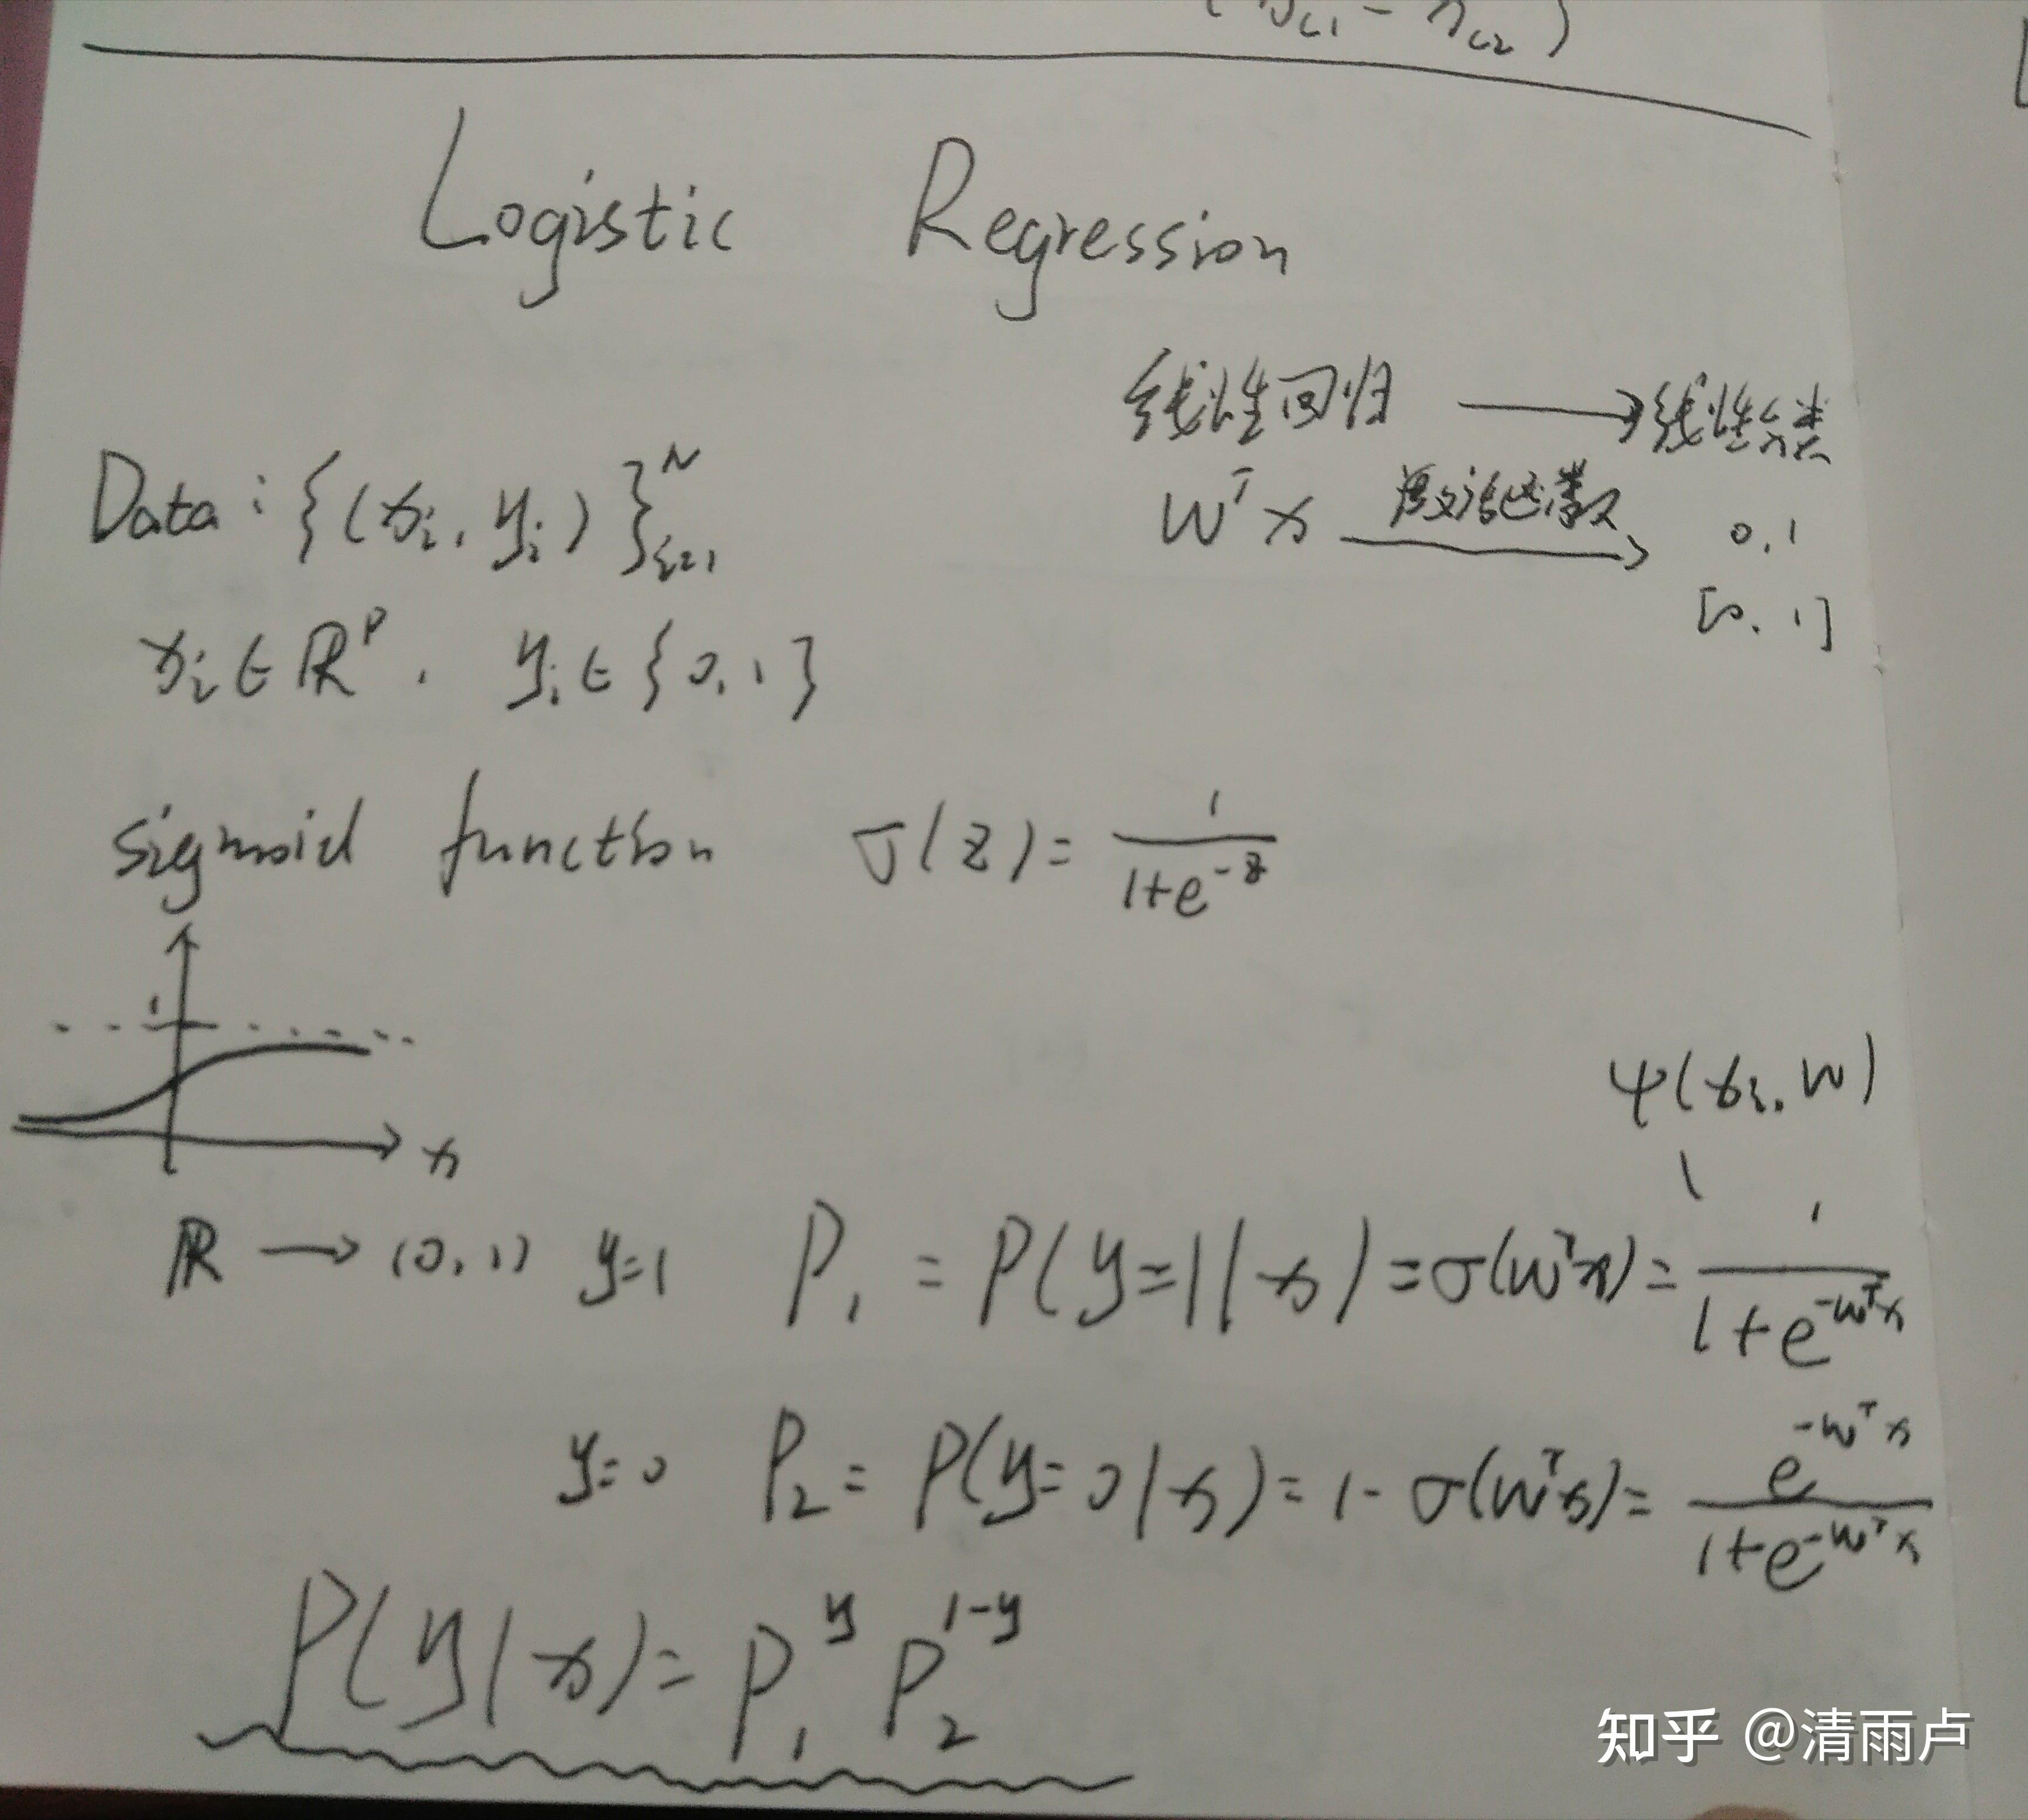 Logistic Regression
线性回归 → 线性分类
Data: {(xᵢ, yᵢ)}ᴺᵢ₌₁
wᵀx 激活函数 → 0, 1
[0, 1]
xᵢ ∈ ℝᵖ, yᵢ ∈ {0, 1}
sigmoid function σ(z) = 1/(1+e^(-z))
1
x
ψ(xᵢ, w)
ℝ → (0, 1) y=1 P₁ = P(y=1|x) = σ(wᵀx) = 1/(1+e^(-wᵀx))
y=0 P₂ = P(y=0|x) = 1 - σ(wᵀx) = e^(-wᵀx)/(1+e^(-wᵀx))
P(y|x) = P₁^y P₂^(1-y)
知乎 @清雨卢